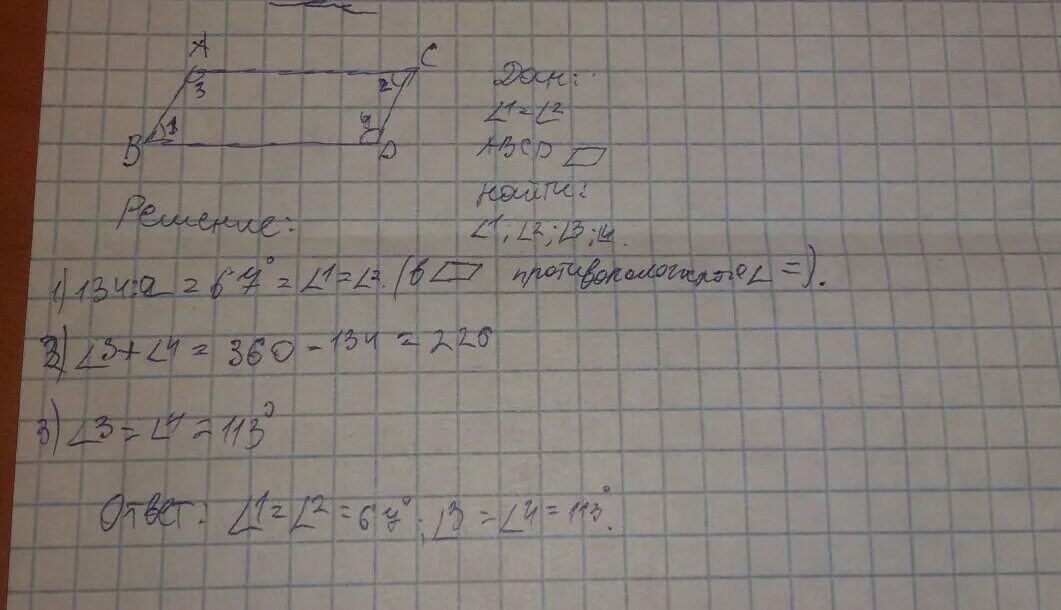 A C
3 2
B 1 4 D
Дан:
∠1=∠2
ABCD ▱
найти:
∠1; ∠2; ∠3; ∠4.
Решение:
1) 134:2 = 67° = ∠1 = ∠2. (в ▱ противоположные ∠ =).
2) ∠3+∠4 = 360 - 134 = 226
3) ∠3 = ∠4 = 113°
Ответ: ∠1 = ∠2 = 67°; ∠3 = ∠4 = 113°.